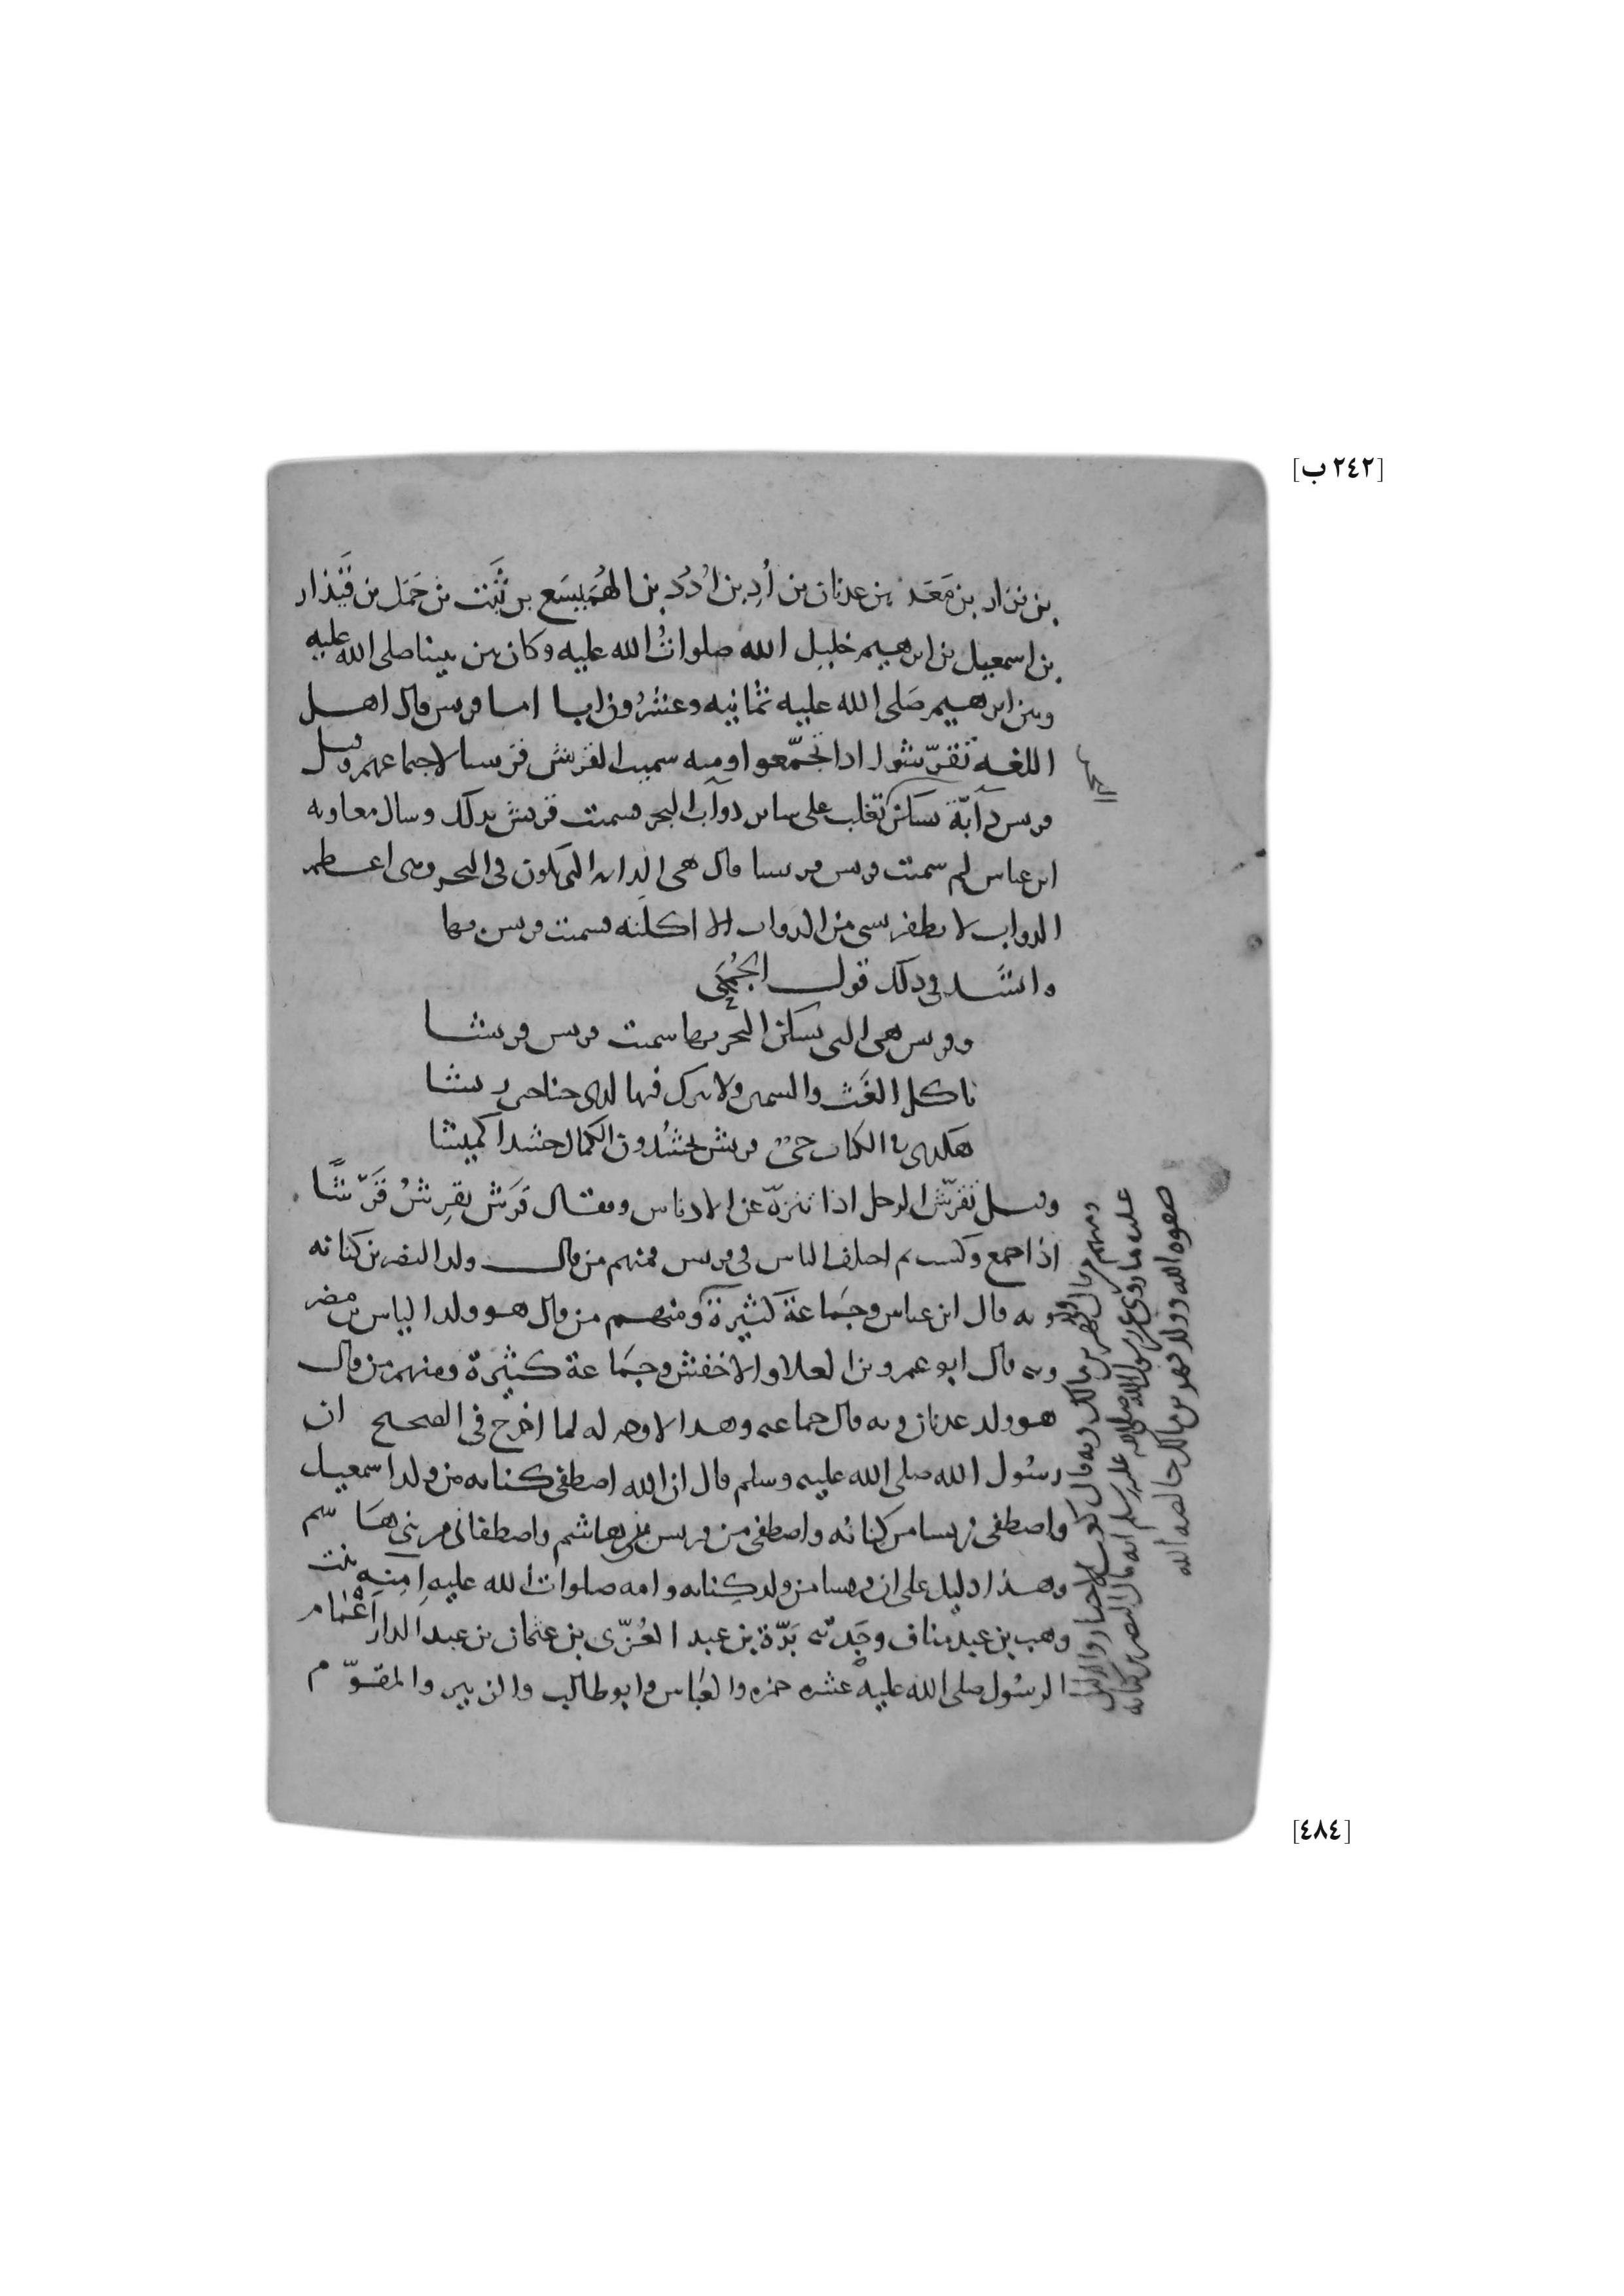 [٢٤٢ ب]
بن نزار بن مَعَد بن عدنان بن أُد بن أُدَد بن الهُمَيسَع بن نَبْت بن حَمَل بن قَيْذار
بن اسمعيل بن ابرهيم خليل الله صلواتُ الله عليه وكان بين نبينا صلى الله عليه
وبين ابرهيم صَلى الله عليه ثمانيه وعشرُون ابا اما قريس قال اهل
اللغه تَقرّشوا اذا تجمّعوا ومنه سميت القريش قريسا لاجتماعهم وقيل
قريس دآبّة تسكن تغلب على ساير دوآب البحر فسميت قريش بذلك وسال معاويه
ابن عباس لم سميت قريس قريسا قال هى الدابه التى تكون فى البحر وهى اعظم
الدواب لا يظفر بشى من الدواب الا اكلته فسميت قريس بها
وانشَد فى ذلك قول الجُمَحى
وقريس هى التى تسكن البحر بها سميت قريس قريشا
تاكل الغَث والسمين ولا تترك فيها لذى جناحين ريشا
هكذى فى الكتاب حىّ قريش يحشُدون الكمال حشدا كميشا
وقيل تقرّش الرجل اذا تنزهّ عن الادناس ويقال قَرَش يقرِشُ قَرْشًا
اذا جمع وكسب ثم اختلف الناس فى قريس فمنهم من قال ولد النضر بن كنانه
وبه قال ابن عباس وجَماعة كثيرة ومنهم من قال هو ولد الياس بن مضر
وبه قال ابو عمرو بن العلاء والاخفش وجَماعة كثيرة ومنهم من قال
هو ولد عدنان وبه قال جماعه وهذا لا وجه له لما اخرج فى الصحيح ان
رسُول الله صلى الله عليه وسلم قال ان الله اصطفى كنانه من ولد اسمعيل
واصطفى قريسا من كنانه واصطفى من قريس بنى هاشم واصطفانى من بنى هَاشم
وهذا دليل على ان قريسا من ولد كِنانه وامه صلوات الله عليه آمِنه بنت
وهب بن عبد مناف وجَدته بَرّة بن عبد العُزّى بن عثمان بن عبد الدار أعْمام
الرسُول صلى الله عليه عشره حمزه والعَباس وابو طالب والزبير والمقوّم
البحار
ومنهم من قال ولد فهر بن مالك وبه قال كعب الاحبار والدليل
عليه ما روى عن رسول الله صلى الله عليه وسلم انه قال النضر بن كنانه
صفوه الله وولد فهر بن مالك خالصه الله
[٤٨٤]